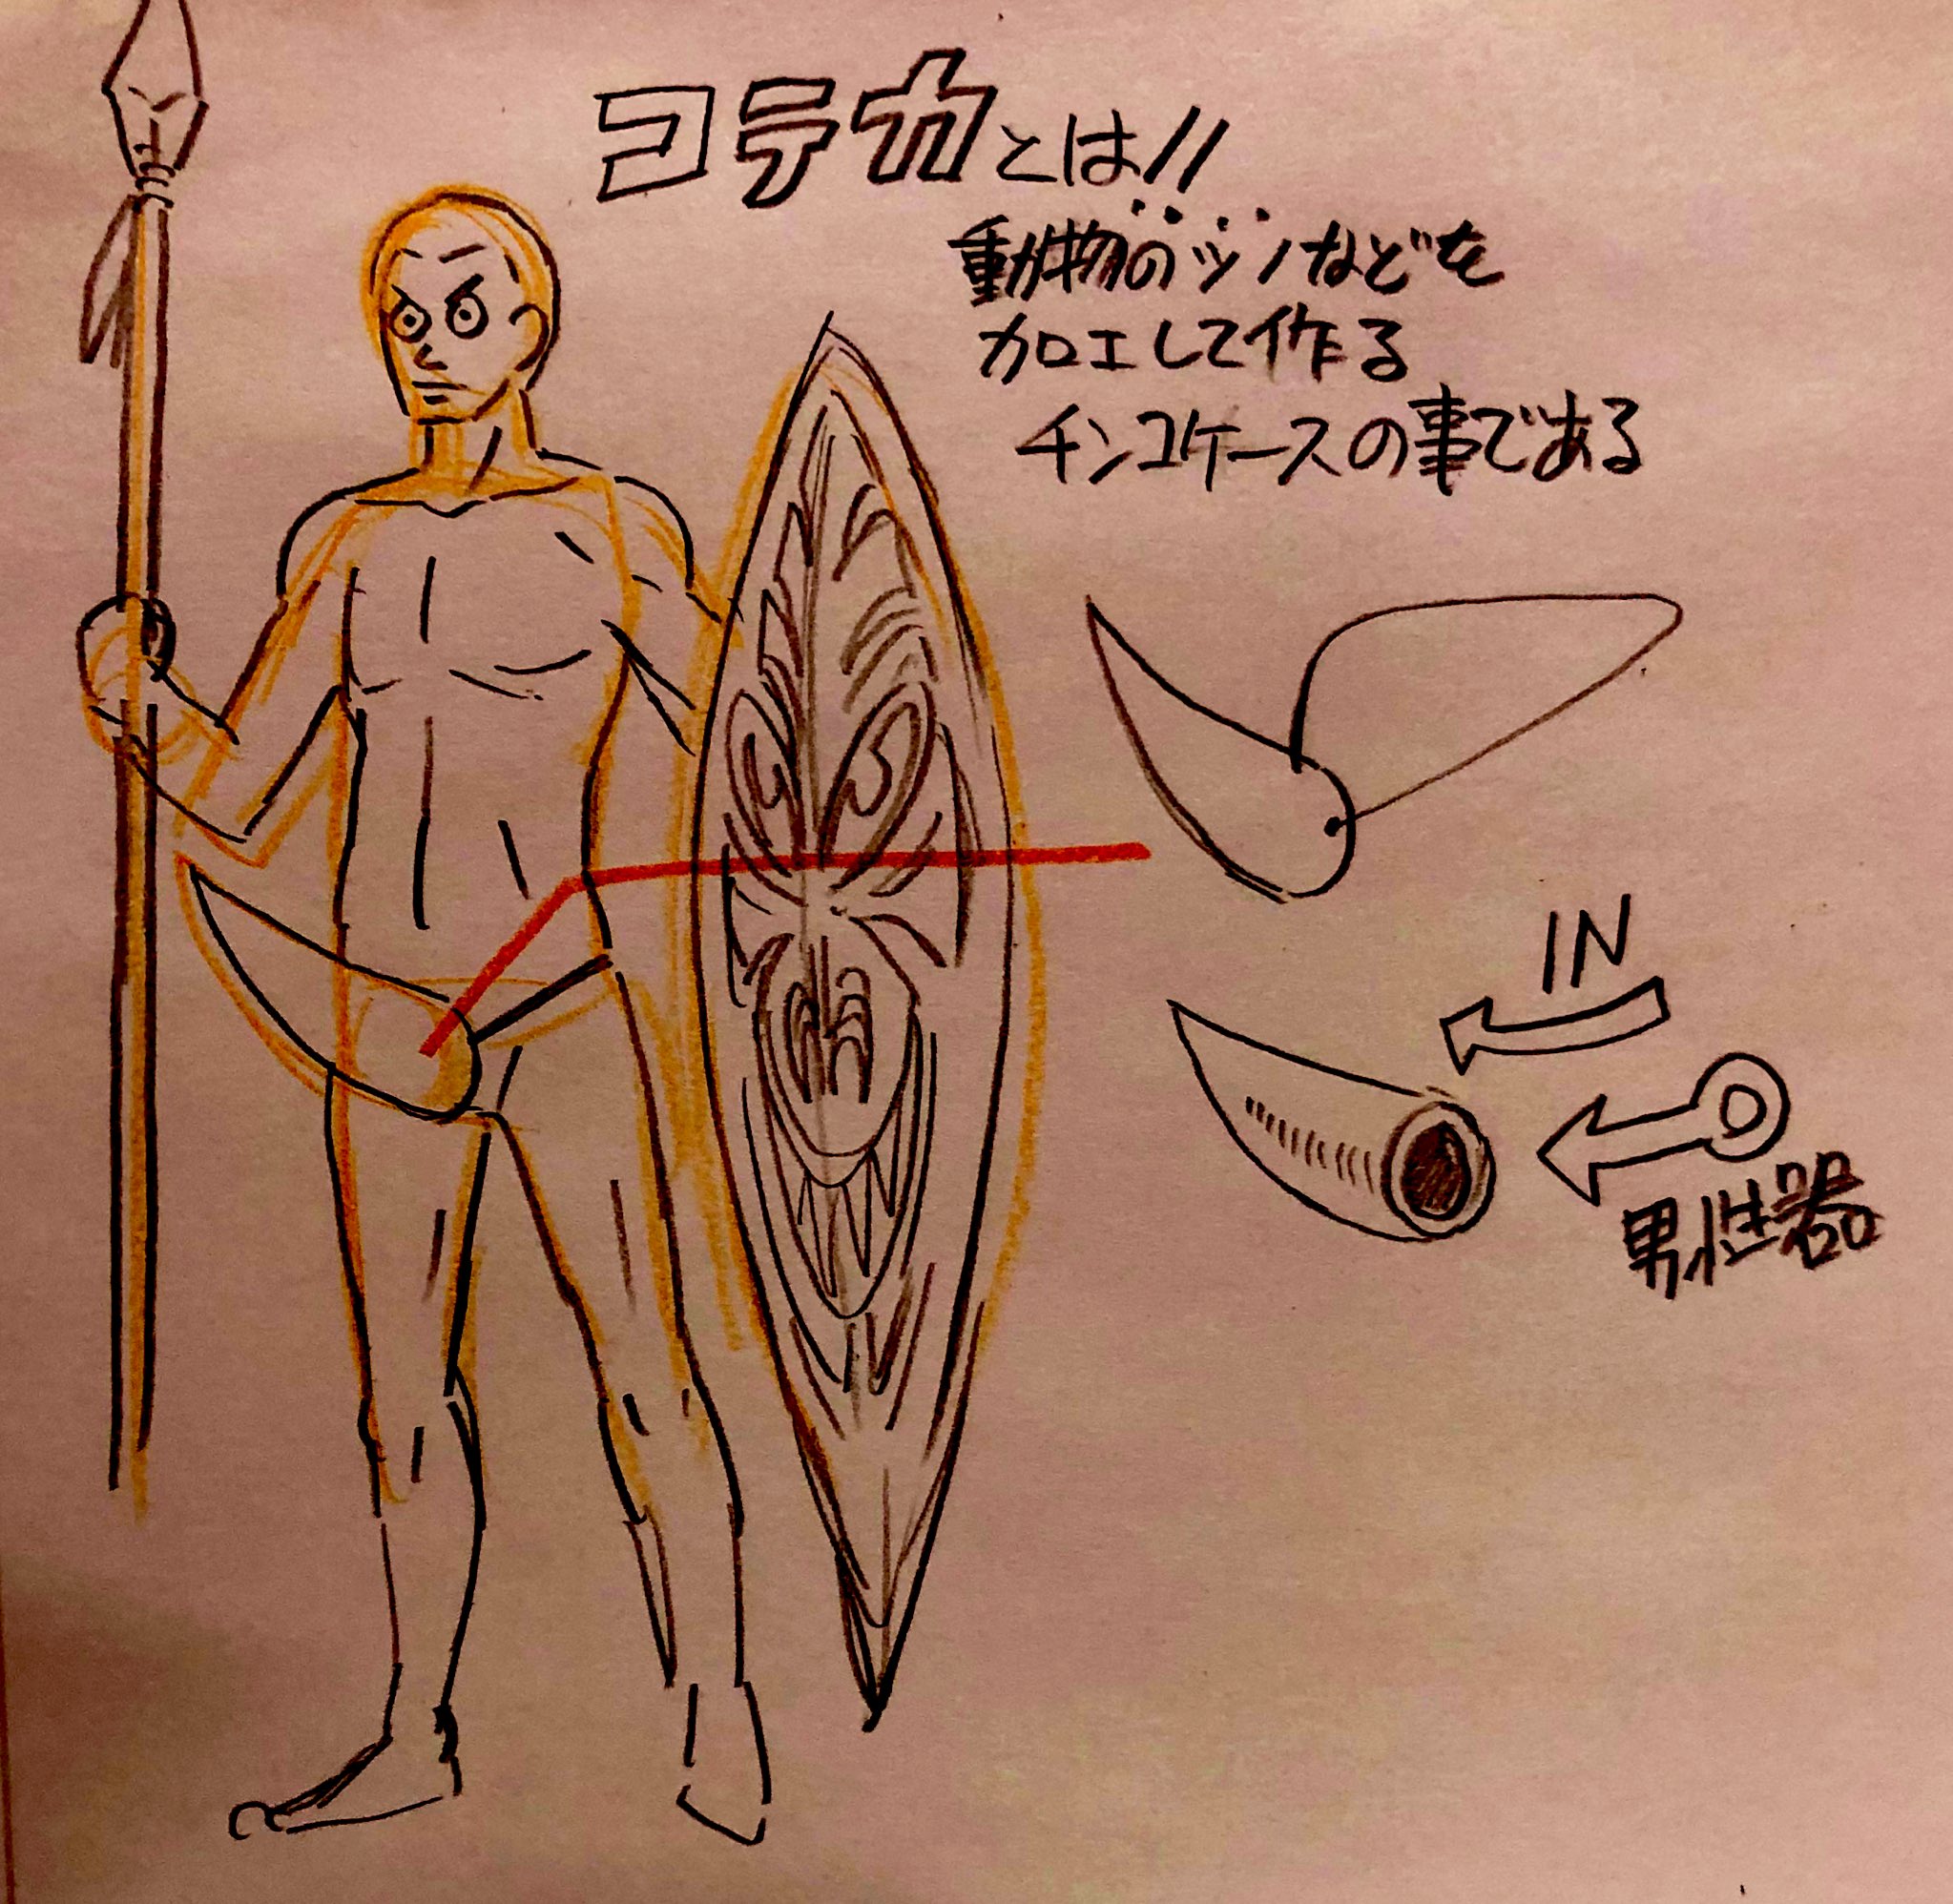 コテカとは!!
動物のツノなどを
加工して作る
チンコケースの事である
IN
男性器